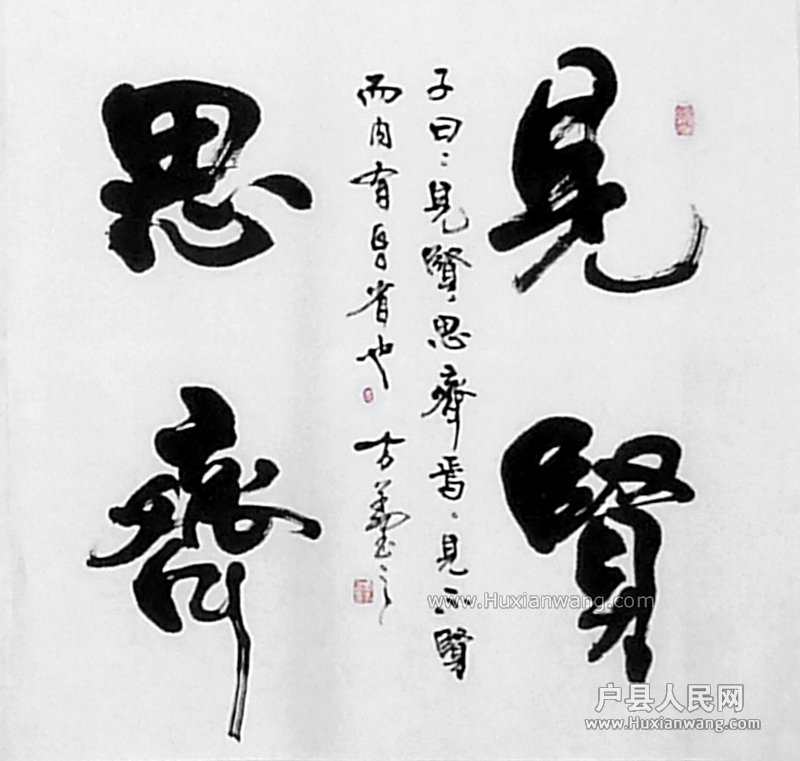 見賢
思齊
子曰：見賢思齊焉，見不賢
而內有自省也
www.Huxianwang.com
户县人民网
www.Huxianwang.com